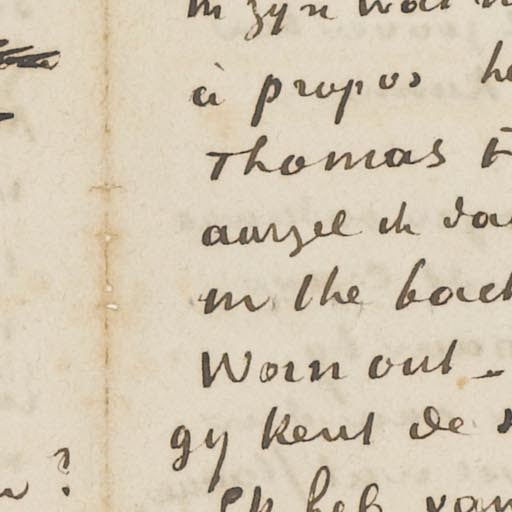 in zyn
à propos
Thomas
aarzel ik
in the back
Worn out –
gy kent de
?
Ik heb van